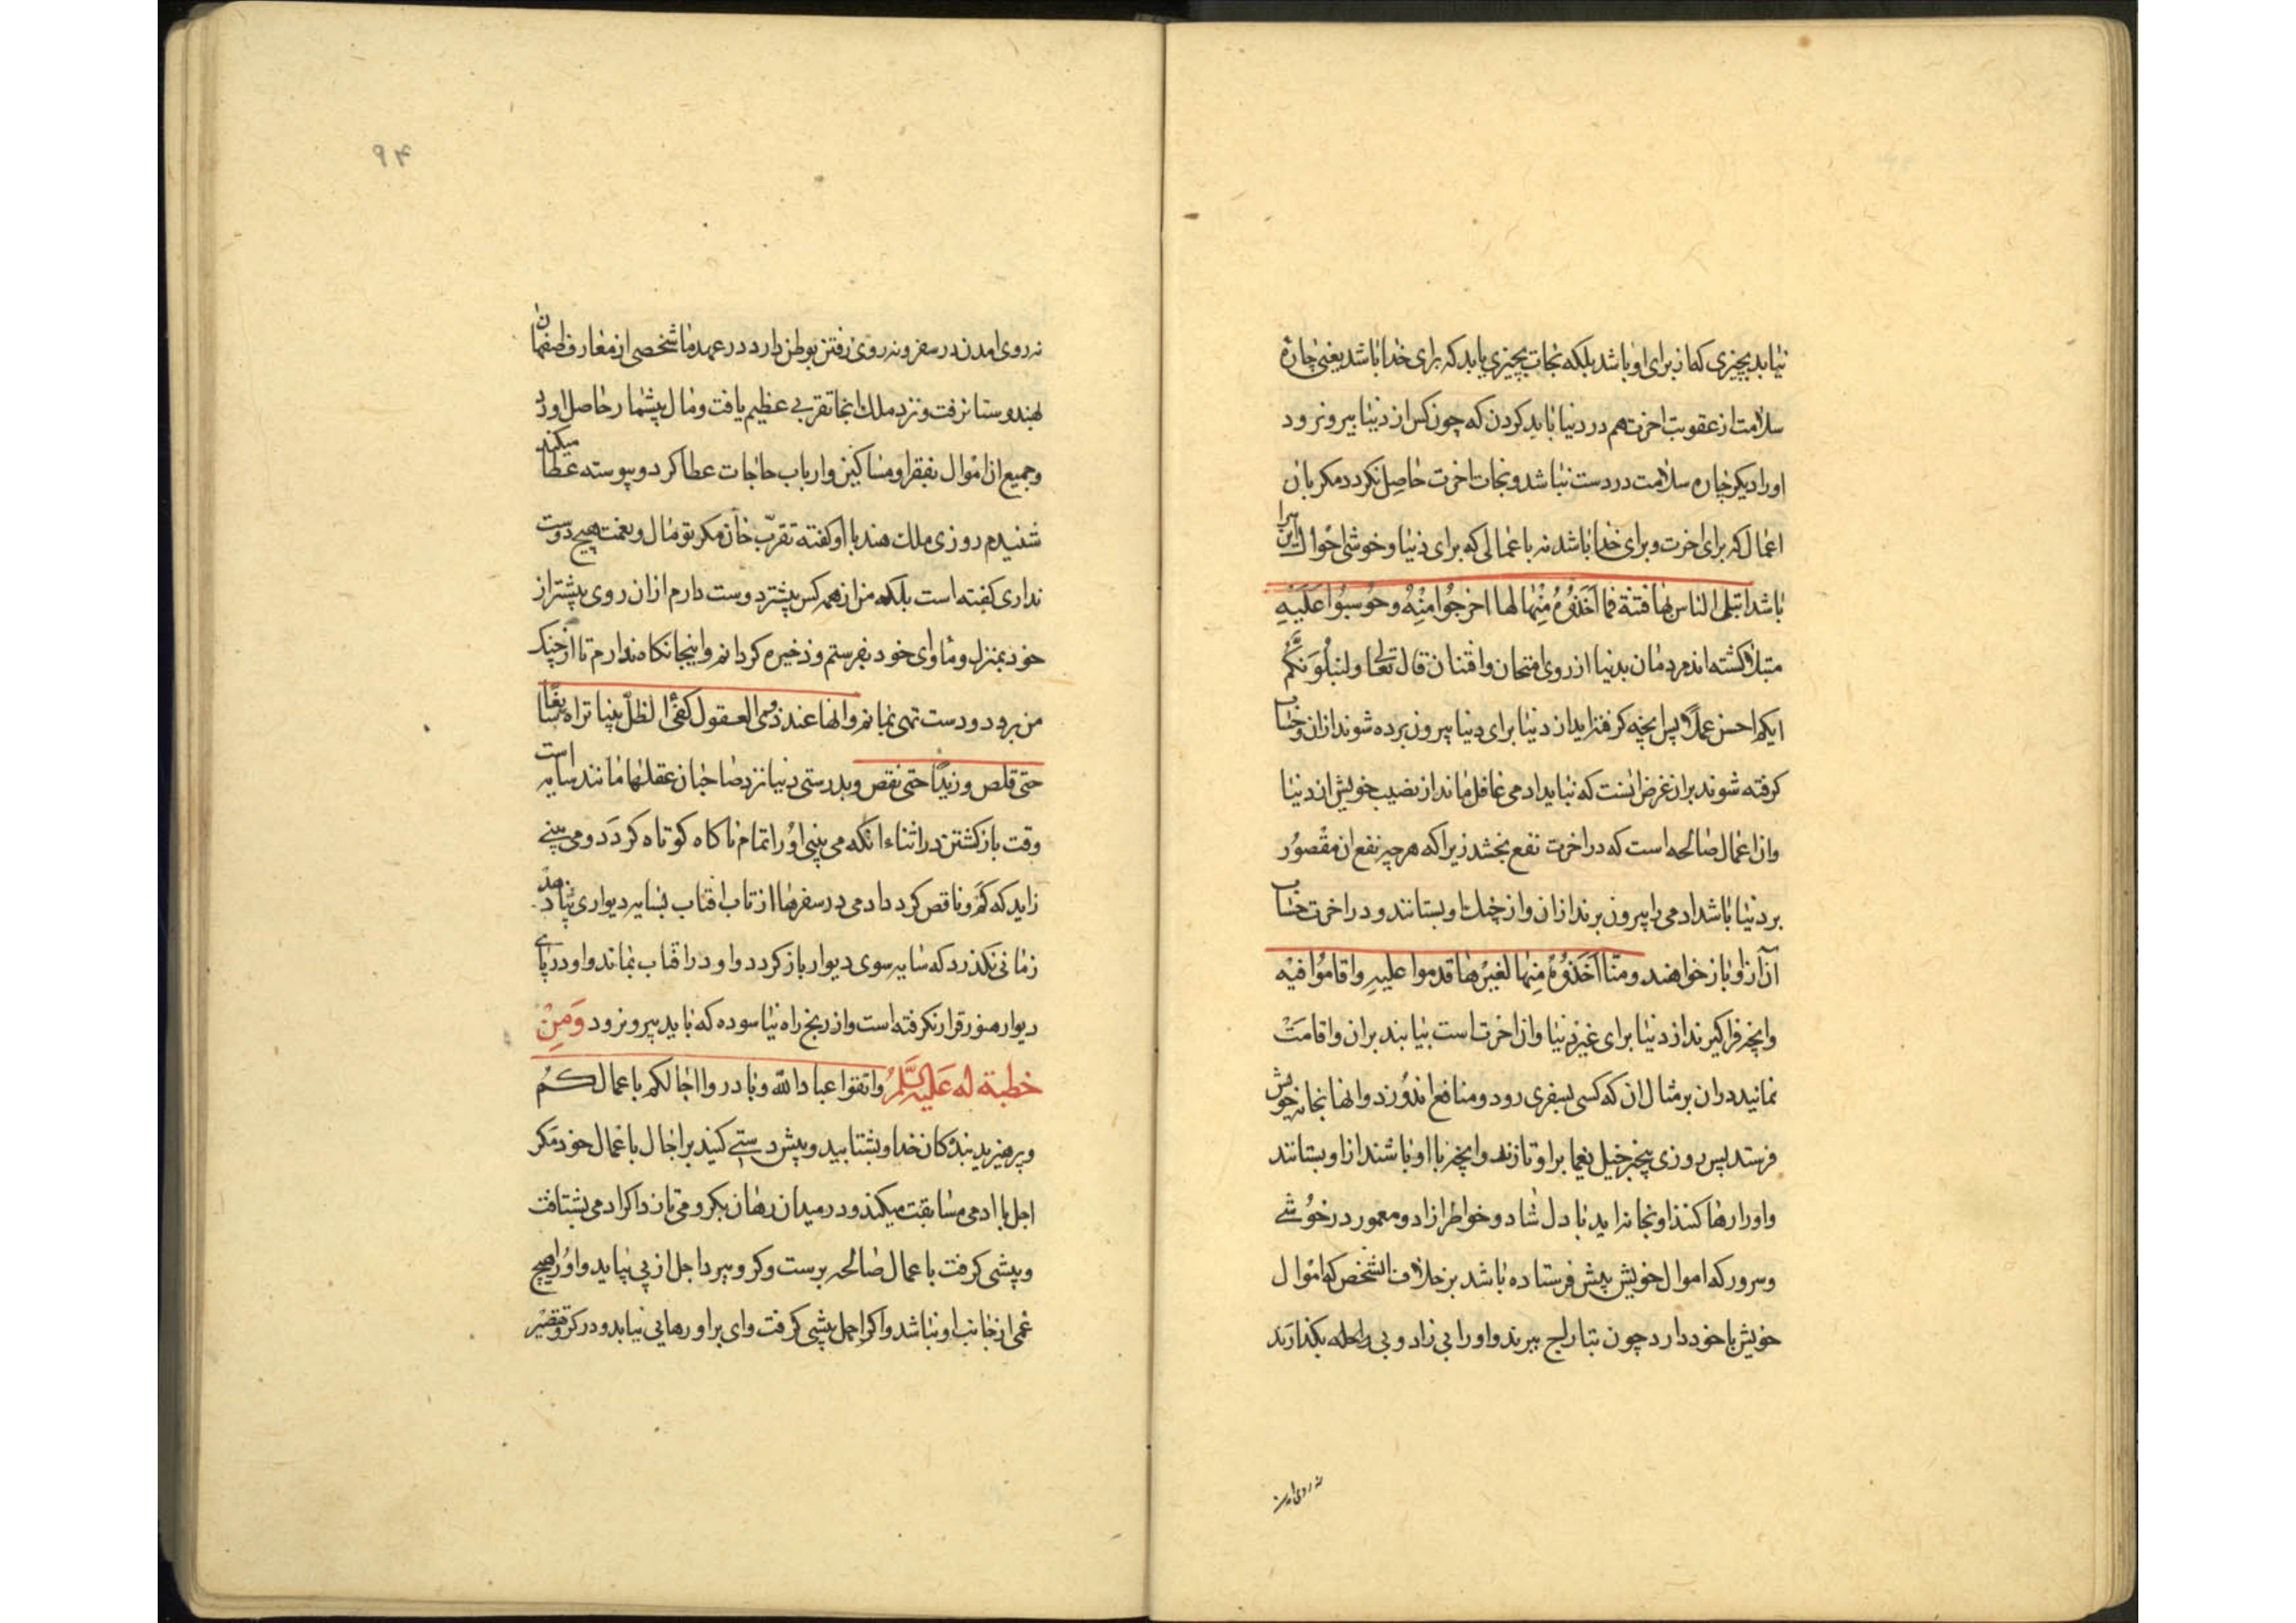 نیابد بچیزی که از برای او باشد بلکه نجات بچیزی یابد که برای خدا باشد یعنی چارهٔ
سلامت از عقوبت اخرت هم در دنیا باید کردن که چون کس از دنیا بیرون رود
او را دیگر چاره سلامت در دست نباشد و نجات اخرت حاصل نکردد مکر بان
اعمال که برای اخرت و برای خدا باشد نه باعمالی که برای دنیا و خوشی احوال این سرا
باشد ابتلی الناس بها فتنة فما اَخَذُوهُ مِنْها لها اخرجُوا مِنْهُ وحُوسِبُوا عَلَیْهِ
مبتلا کشته اند مردمان بدنیا از روی امتحان وافتنان قال تعالی ولنبلُوَنَّکُم
ایکم احسن عملاً پس انچه کرفته اید از دنیا برای دنیا بیرون برده شوند ازان وحساب
کرفته شوند بران غرض انست که نباید ادمی غافل ماند از نصیب خویش از دنیا
وان اعمال صالحه است که در اخرت نفع بخشد زیرا که هر چیز نفع ان مقصُور
بر دنیا باشد ادمی را بیرون برند ازان و از چنك او بستانند و در اخرت حساب
آن از او باز خواهند وما اَخَذُوهُ مِنها لغیرها قدموا علیهِ واقامُوا فیْه
وانچه فراکیرند از دنیا برای غیر دنیا وان اخرت است بیابند بران واقامَتْ
نمایند دران بر مثال ان که کسی بسفری رود و منافع اندوزد و انها بخانه خویش
فرستد پس روزی بیخبر خیل یغما بر او تازند وانچه با او باشند از او بستانند
و او را رها کنند او بخانه اید با دل شاد و خواطر ازاد و معمور در خُوشی
وسرور که اموال خویش پیش فرستاده باشد بر خلاف الشخص که اموال
خویش با خود دارد چون بتاراج ببرند و او را بی زاد و بی راحله بکذارَند
نه روی امدن
۹۴
نه روی امدن در سفر و نه روی رفتن بوطن دارد در عهد ما شخصی از معارف اصفهان
بهندوستان رفت و نزد ملك انجا تقربی عظیم یافت و مال بیشمار حاصل اورد
وجمیع ان اموال بفقرا ومساکین وارباب حاجات عطا کرد و پیوسته عطا میکند
شنیدم روزی ملك هند با او کفته تقرّب خان مکر تو مال و نعمت هیچ دوست
نداری کفته است بلکه من از همه کس بیشتر دوست دارم ازان روی پیشتر از
خود بمنزل و ماوای خود بفرستم و ذخیره کردانم و اینجا نکاه ندارم تا از چنک
من برد و دست تهی بمانم وانها عند ذوی العقول کفئ الظلّ بینا تراه سابغًا
حتی قلص وزیدًا حتی نقص وبدرستی دنیا نزد صاحبان عقلها مانند سایه است
وقت باز کشتن در اثناء انکه می بینی او را تمام ناکاه کوتاه کردَد و می بینی
زاید که کم و ناقص کردد ادمی در سفرها از تاب افتاب بسایه دیواری پناه دهد
زمانی نکذرد که سایه سوی دیوار باز کردد و او در افتاب بماند و او در پای
دیوار هنوز قرار نکرفته است و از رنج راه نیاسوده که باید بیرون رود وَمِنْ
خطبة له عَلَیْهِ السَّلَمُ واتقوا عباد اللّٰه وبادروا اجالکم باعمالکُم
وپرهیزید بندکان خدا و بشتابید و پیش دستی کنید بر اجال باعمال خود مکر
اجل با ادمی مسابقت میکند و در میدان رهان بکرو می تازد اکر ادمی بشتافت
وپیشی کرفت باعمال صالحه برست و کرو ببرد اجل از پی بیاید و او را هیچ
غمی از جانب او نباشد و اکر اجل پیشی کرفت وای بر او رهایی نیابد و در کرو تقصیر